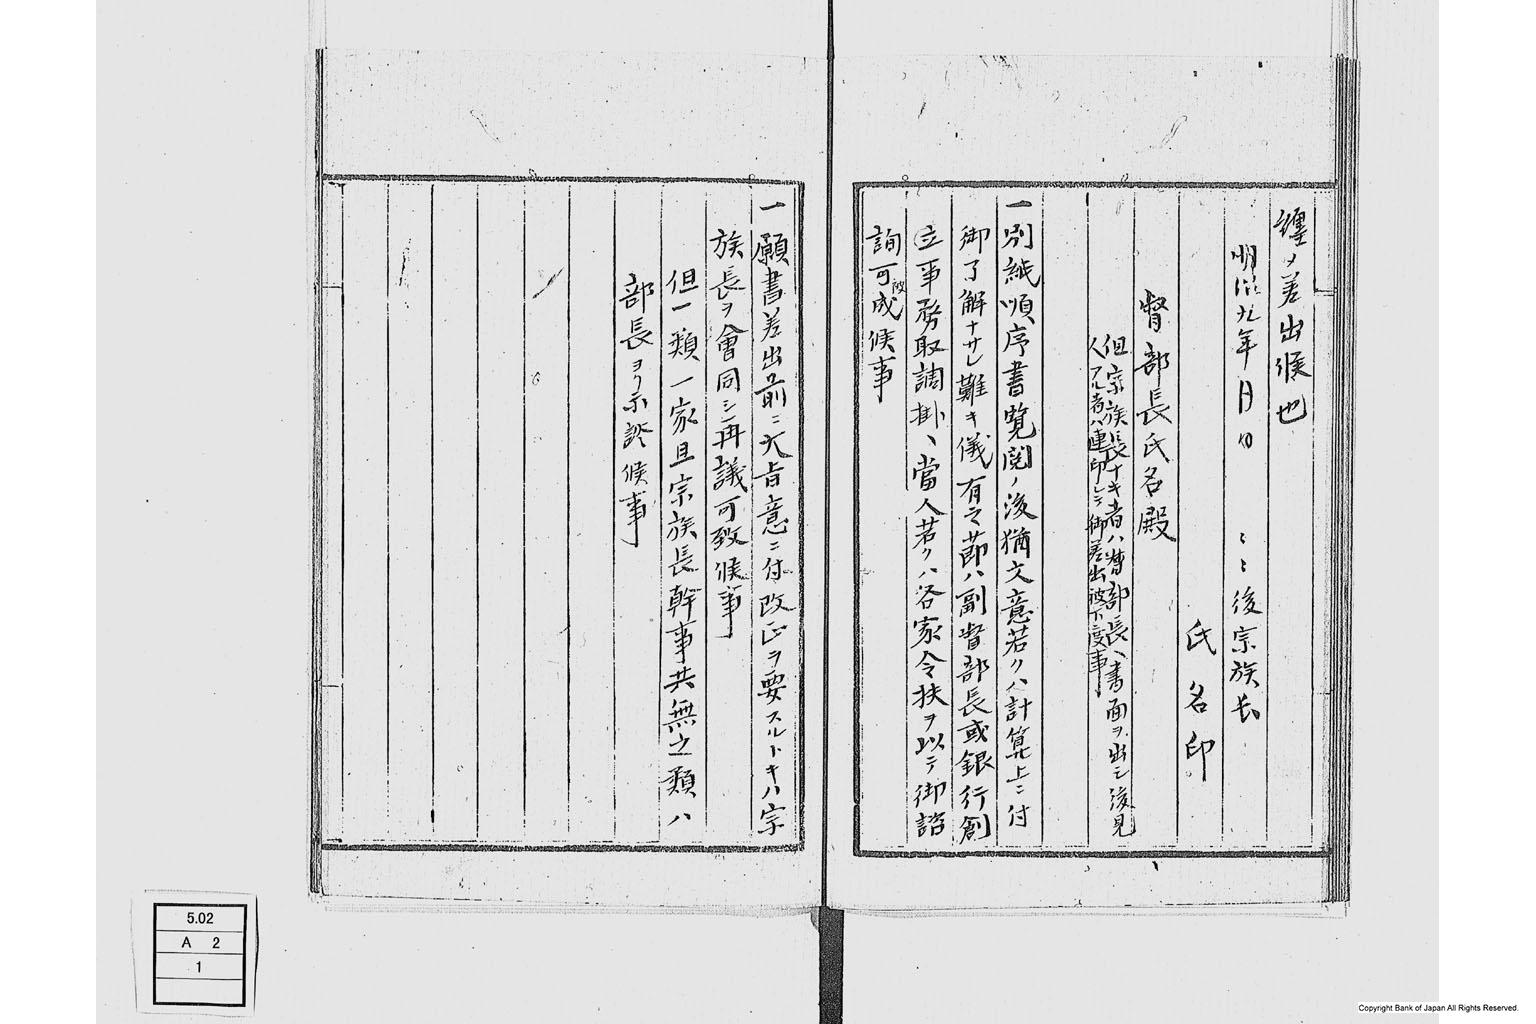 纏メ差出候也
明治九年 月 日 〻〻後宗族長
氏名印
督部長氏名殿
但宗族長ナキ者ハ督部長ヘ書面ヲ出シ後見
人アル者ハ連印シテ御差出被下度事
一別紙順序書覧閲ノ後猶文意若クハ計算上ニ付
御了解ナサレ難キ儀有之節ハ副督部長或銀行創
立事務取調掛ヘ當人若クハ各家令扶ヲ以テ御諮
詢可被成候事
一願書差出前ニ大旨意ニ付改正ヲ要スルトキハ宗
族長ヲ會同シ再議可致候事
但一類一家且宗族長幹事共無之類ハ
部長ヨリ示談候事
5.02
A 2
1
Copyright Bank of Japan All Rights Reserved.